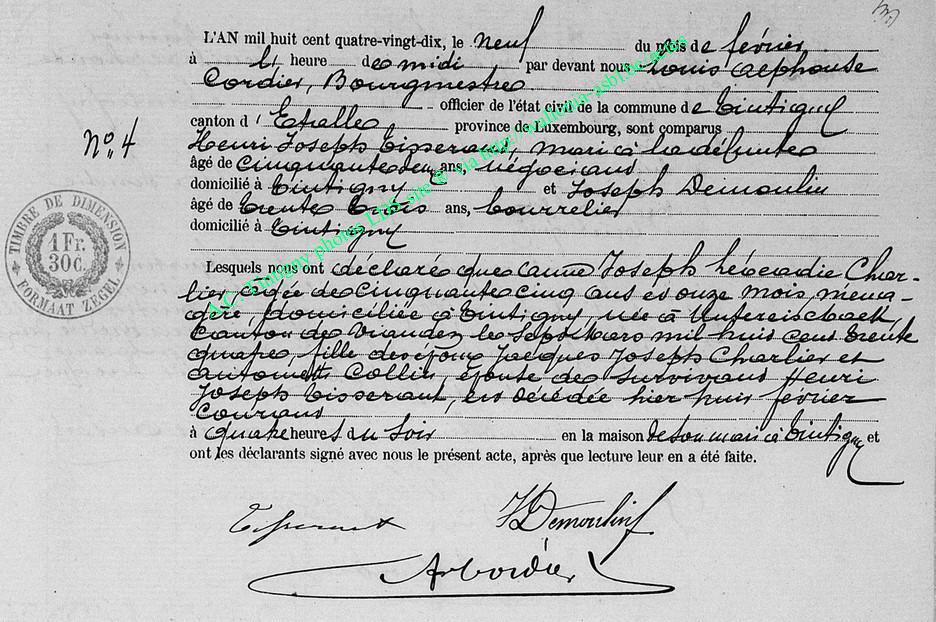 L'AN mil huit cent quatre-vingt-dix, le neuf du mois de février
à heure de midi par devant nous Louis Alphonse
Cordier, Bourgmestre
officier de l'état civil de la commune de Tintigny
canton d'Etalle province de Luxembourg, sont comparus
N° 4
Henri Joseph Tisserant, mari à la défunte
âgé de cinquante deux ans, négociant
domicilié à Tintigny et Joseph Demoulin
âgé de trente trois ans, bourrelier
domicilié à Tintigny
TIMBRE DE DIMENSION
1 Fr.
30 c.
FORMAAT ZEGEL
Lesquels nous ont déclaré que Anne Joseph Léocadie Char-
lier, âgée de cinquante cinq ans et onze mois, ména-
gère, domiciliée à Tintigny, née à Untereisbach,
Canton de Vianden le sept Mars mil huit cent trente
quatre, fille des époux Jacques Joseph Charlier et
Antoinette Collin, épouse de survivant Henri
Joseph Tisserant, est décédée hier huit février
courant
à quatre heures du soir en la maison de son mari à Tintigny et
ont les déclarants signé avec nous le présent acte, après que lecture leur en a été faite.
Tisserant JDemoulin
ACordier
A.C. Tintigny photos LDS site © via http://wallonia-asbl.be